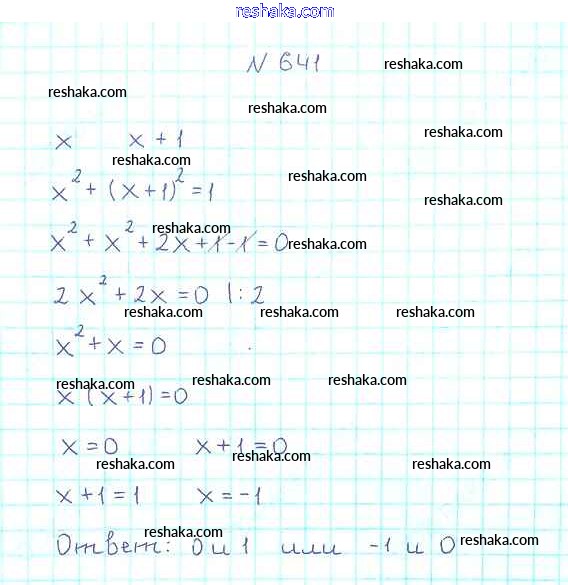 reshaka.com
N 641 reshaka.com
reshaka.com
reshaka.com
x x + 1 reshaka.com
reshaka.com
x² + (x+1)² = 1 reshaka.com
reshaka.com
reshaka.com
x² + x² + 2x + 1 - 1 = 0 reshaka.com
2x² + 2x = 0 |: 2
reshaka.com reshaka.com reshaka.com
x² + x = 0
reshaka.com reshaka.com reshaka.com
x (x+1) = 0
x = 0 x + 1 = 0
reshaka.com reshaka.com reshaka.com
x + 1 = 1 x = -1
reshaka.com
Ответ: 0 и 1 или -1 и 0 reshaka.com
reshaka.com reshaka.com